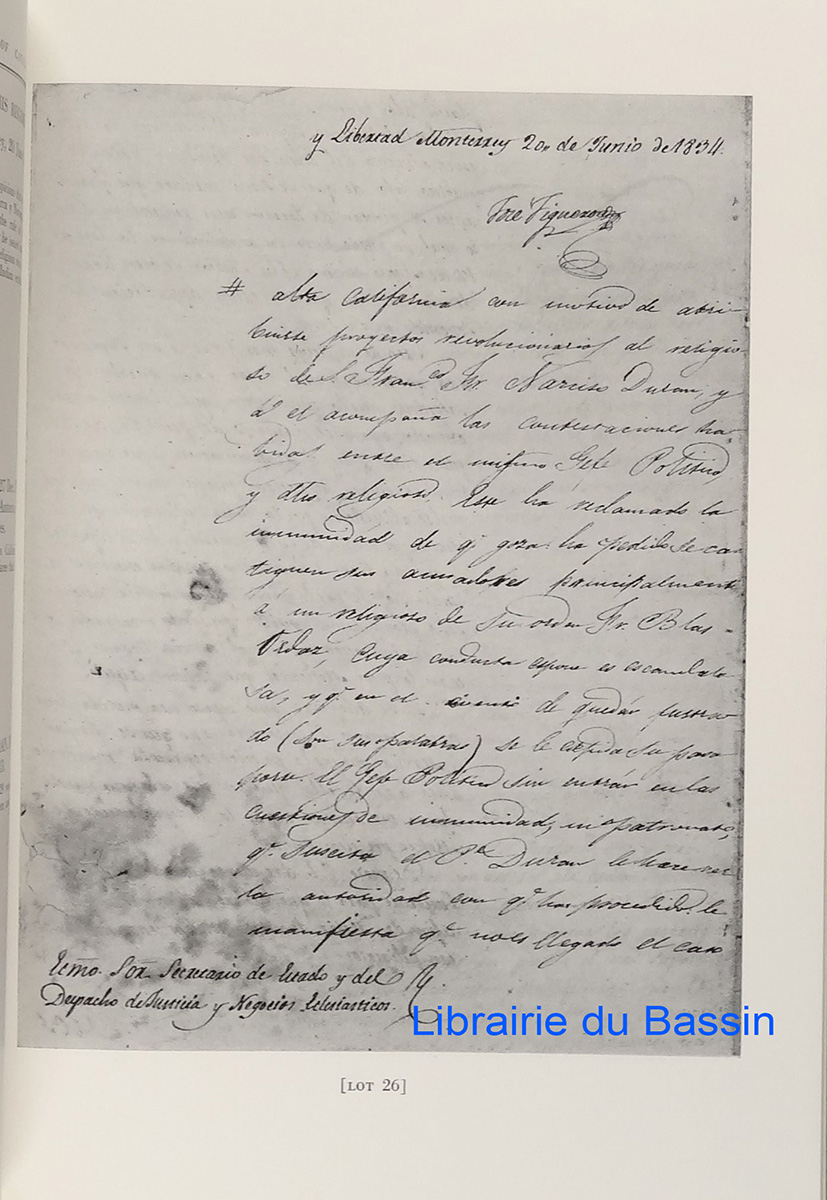 y Libertad Monterrey 20, de Junio de 1834.
José Figueroa
# alta California con motivo de atri-
buirse proyectos revolucionarios al religio-
so de S. Fran.co Fr. Narciso Duran, y
á el acompaña las contestaciones ha-
bidas entre el mismo Gefe Politico
y dho religioso. Este ha reclamado la
inmunidad de q.e goza: ha pedido se cas
tiguen sus acusadores principalmente
á un religioso de su orden Fr. Blas -
Ordaz, cuya conducta espone es escandalo
sa, y q.e en el evento de quedar
do (son sus palabras) se le espida su pasa
porte. El Gefe Politico sin entrár en las
cuestiones de inmunidad, ni patronato,
q.e suscita el P.e Duran le hace ver
la autoridad con q.e ha procedido: le
manifiesta q.e no es llegado el caso
Ecmo. Sor. Secretario de Estado y del
Despacho de Justicia y Negocios Eclesiasticos.
Librairie du Bassin
[LOT 26]